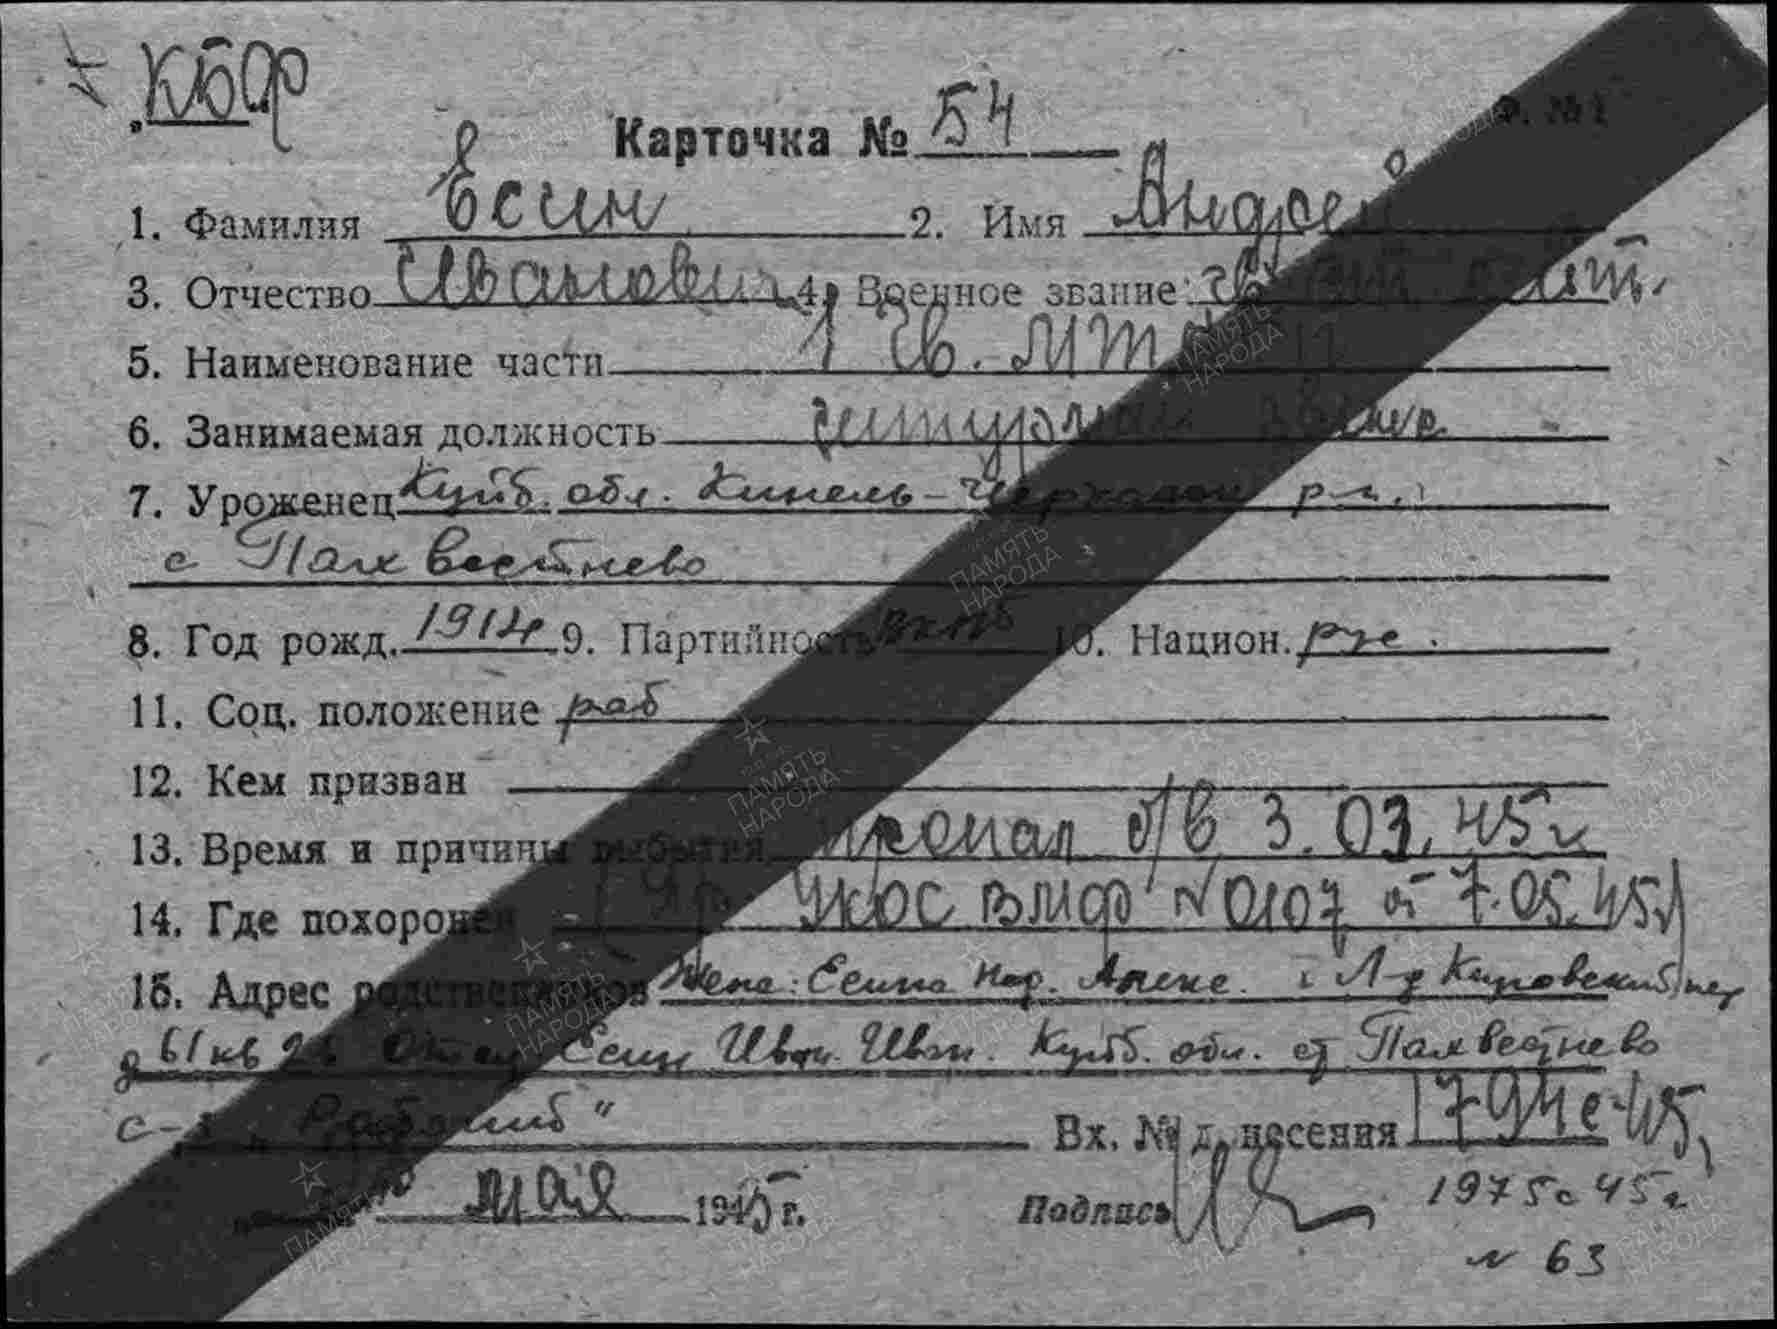 КБФ
Ф. №1
Карточка № 54
1. Фамилия Есин 2. Имя Андрей
3. Отчество Иванович 4. Военное звание
5. Наименование части 1 Гв. МТАП
6. Занимаемая должность штурман звена
7. Уроженец Куйб. обл. Кинель-Черкасский р-н,
с
8. Год рожд. 1914 9. Партийность ВКПб 10. Национ. рус.
11. Соц. положение раб
12. Кем призван
13. Время и причины выбытия пропал б/в 3.03.45г
14. Где похоронен УКОС ВМФ №0107 от 7.05.45г)
15. Адрес родственников Жена: Есина Алекс. Кировский
д 61 кв Отец Есин Иван Иван. Куйб. обл.
"
Вх. № донесения 1794с-45,
мая 1945 г.
Подпись
1975с 45г
№ 63
ПАМЯТЬ НАРОДА